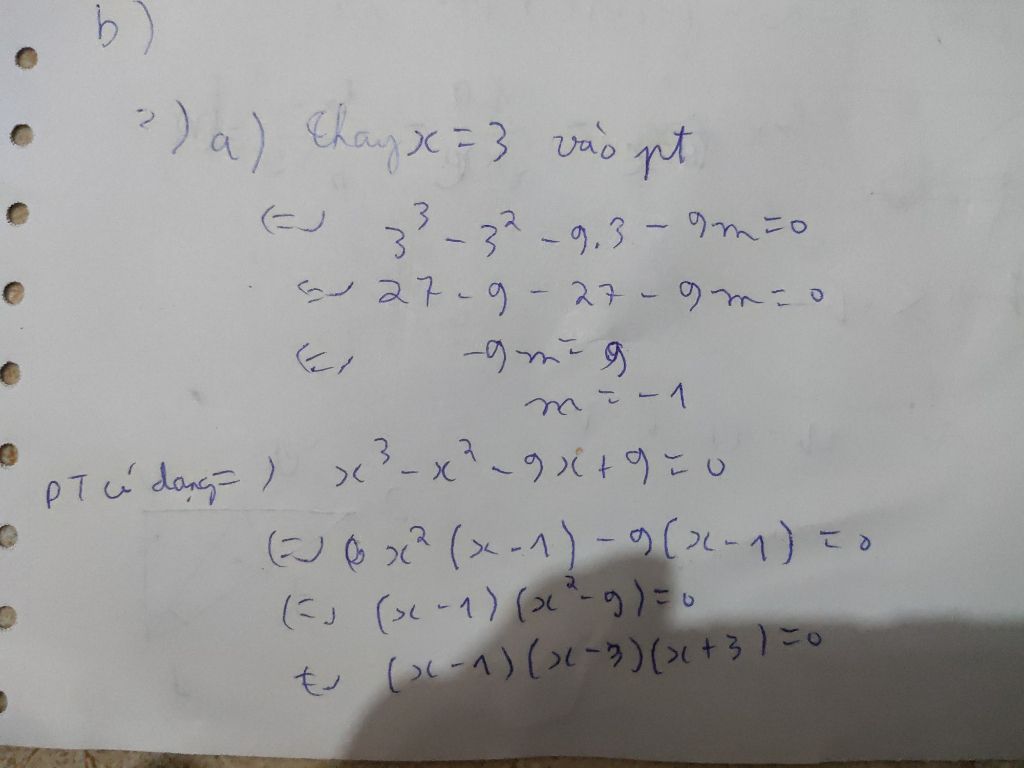 b)
2) a) thay x = 3 vào pt
(=) 3³ - 3² - 9.3 - 9m = 0
(=) 27 - 9 - 27 - 9m = 0
(=) -9m = 9
m = -1
PT có dạng =) x³ - x² - 9x + 9 = 0
(=) x² (x - 1) - 9(x - 1) = 0
(=) (x - 1)(x² - 9) = 0
(=) (x - 1)(x - 3)(x + 3) = 0